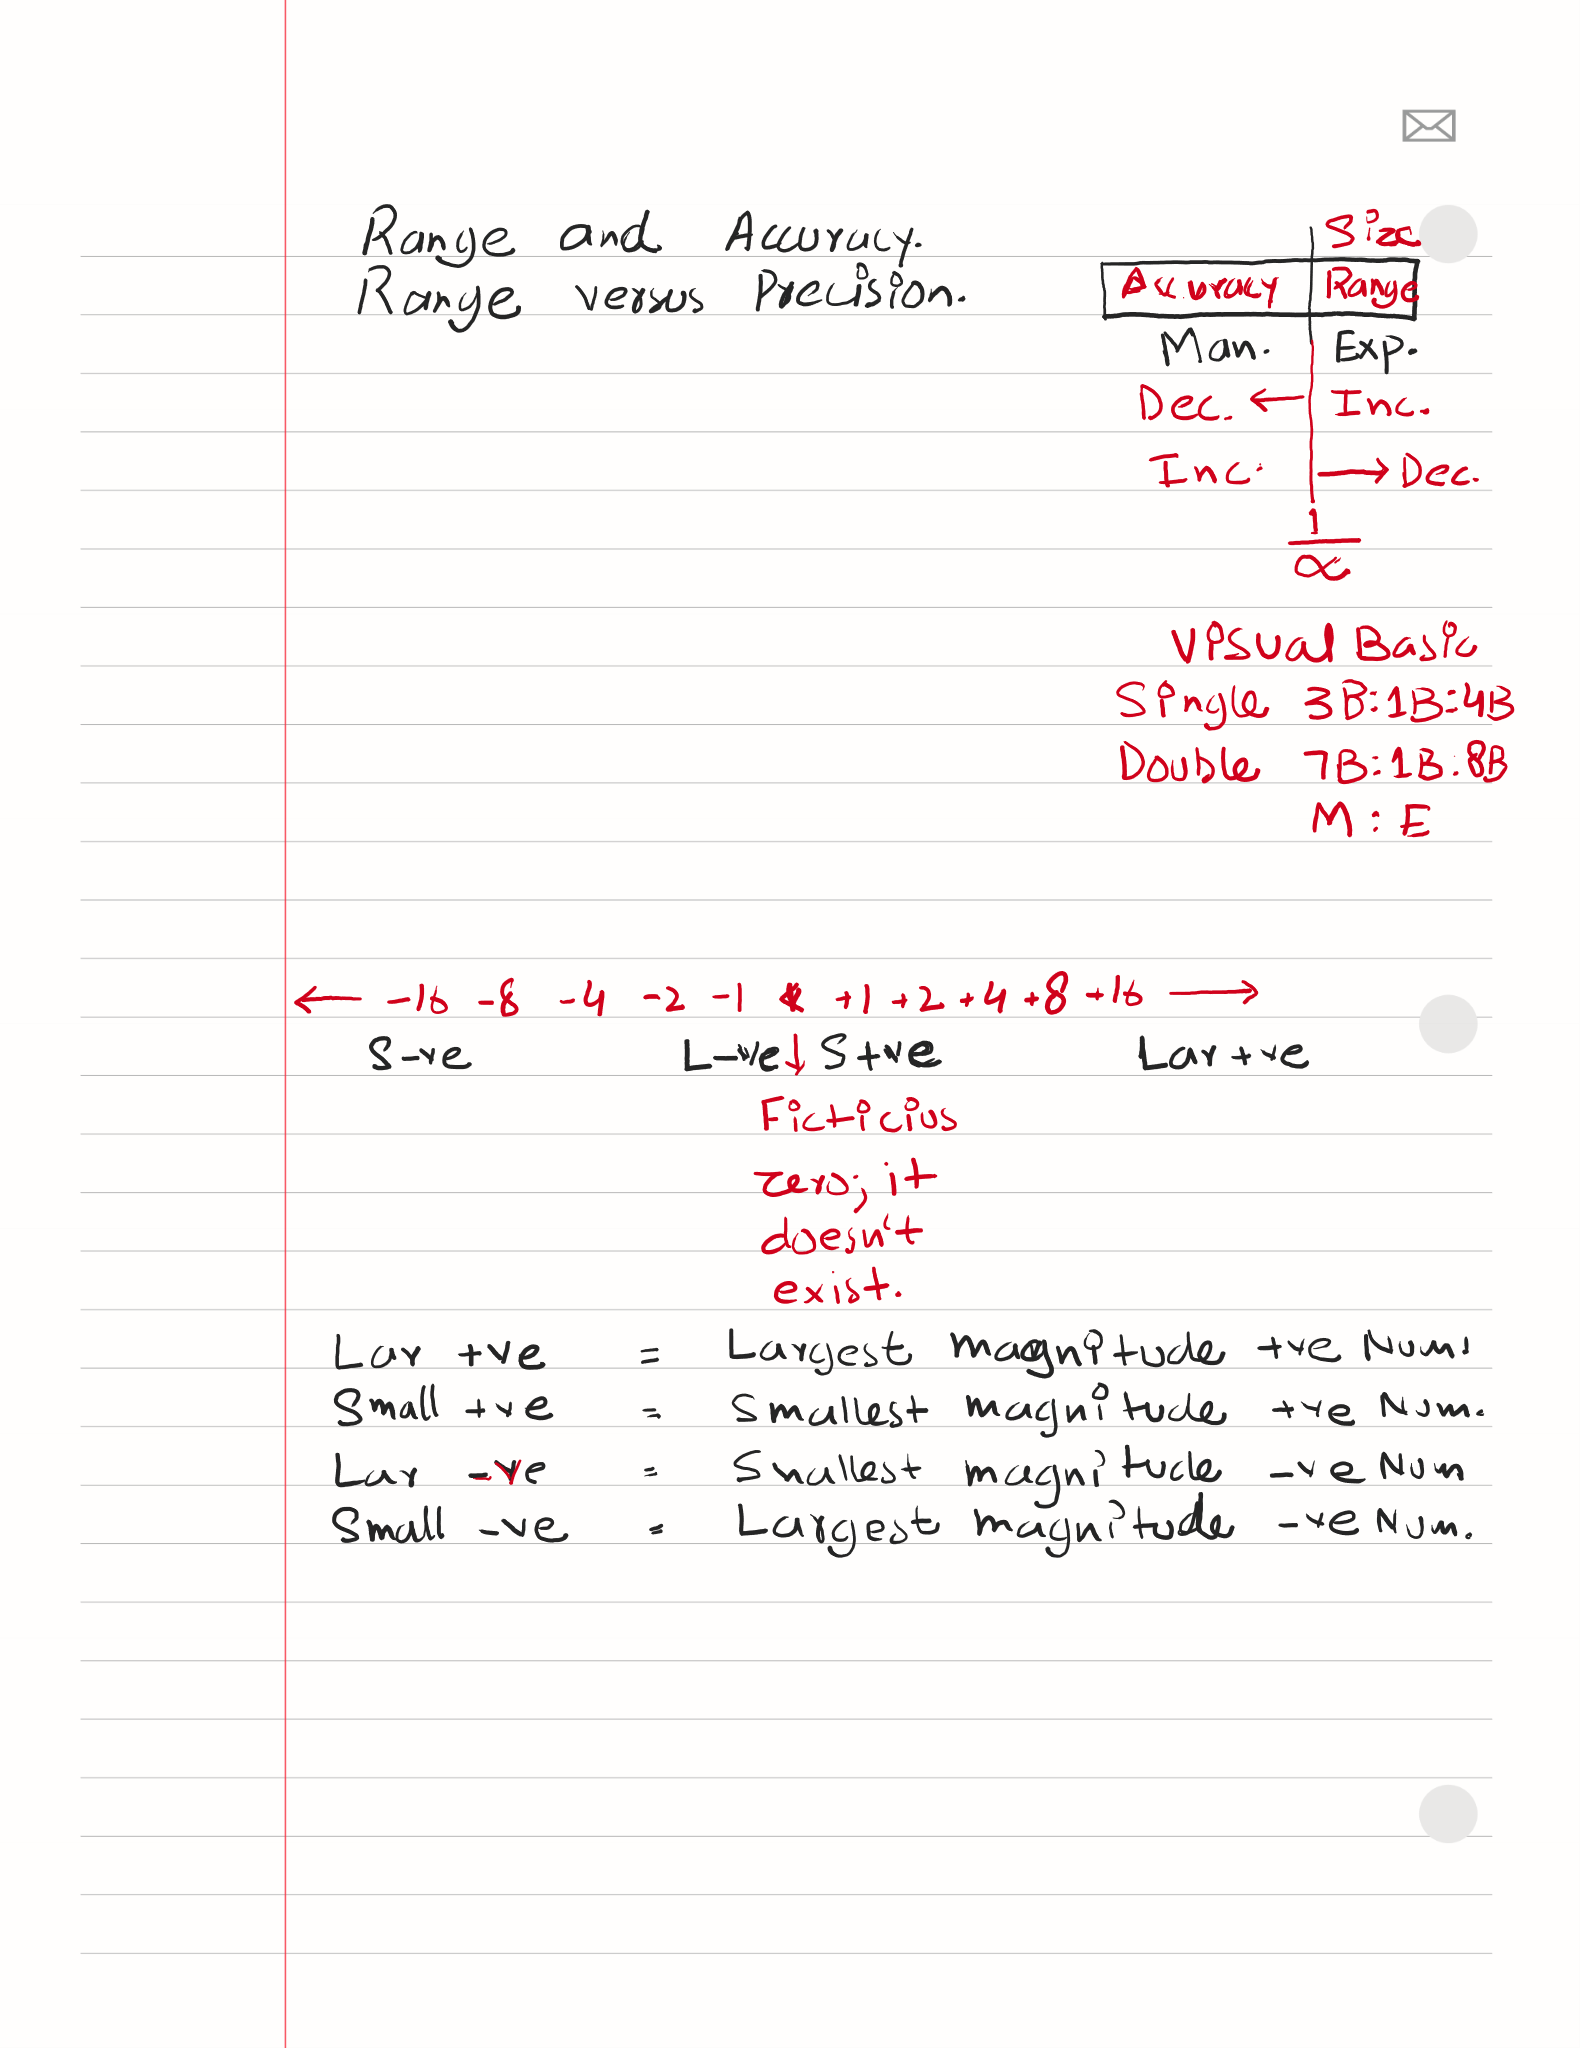 Range and Accuracy.
Range versus Precision.
Size
Accuracy Range
Man. Exp.
Dec. ← Inc.
Inc. → Dec.
1
∝
Visual Basic
Single 3B:1B:4B
Double 7B:1B:8B
M : E
← -16 -8 -4 -2 -1 +1 +2 +4 +8 +16 →
S-ve L-ve ↓ S+ve Lar+ve
Ficticius
zero; it
doesn't
exist.
Lar +ve = Largest magnitude +ve Num.
Small +ve = Smallest magnitude +ve Num.
Lar -ve = Smallest magnitude -ve Num
Small -ve = Largest magnitude -ve Num.